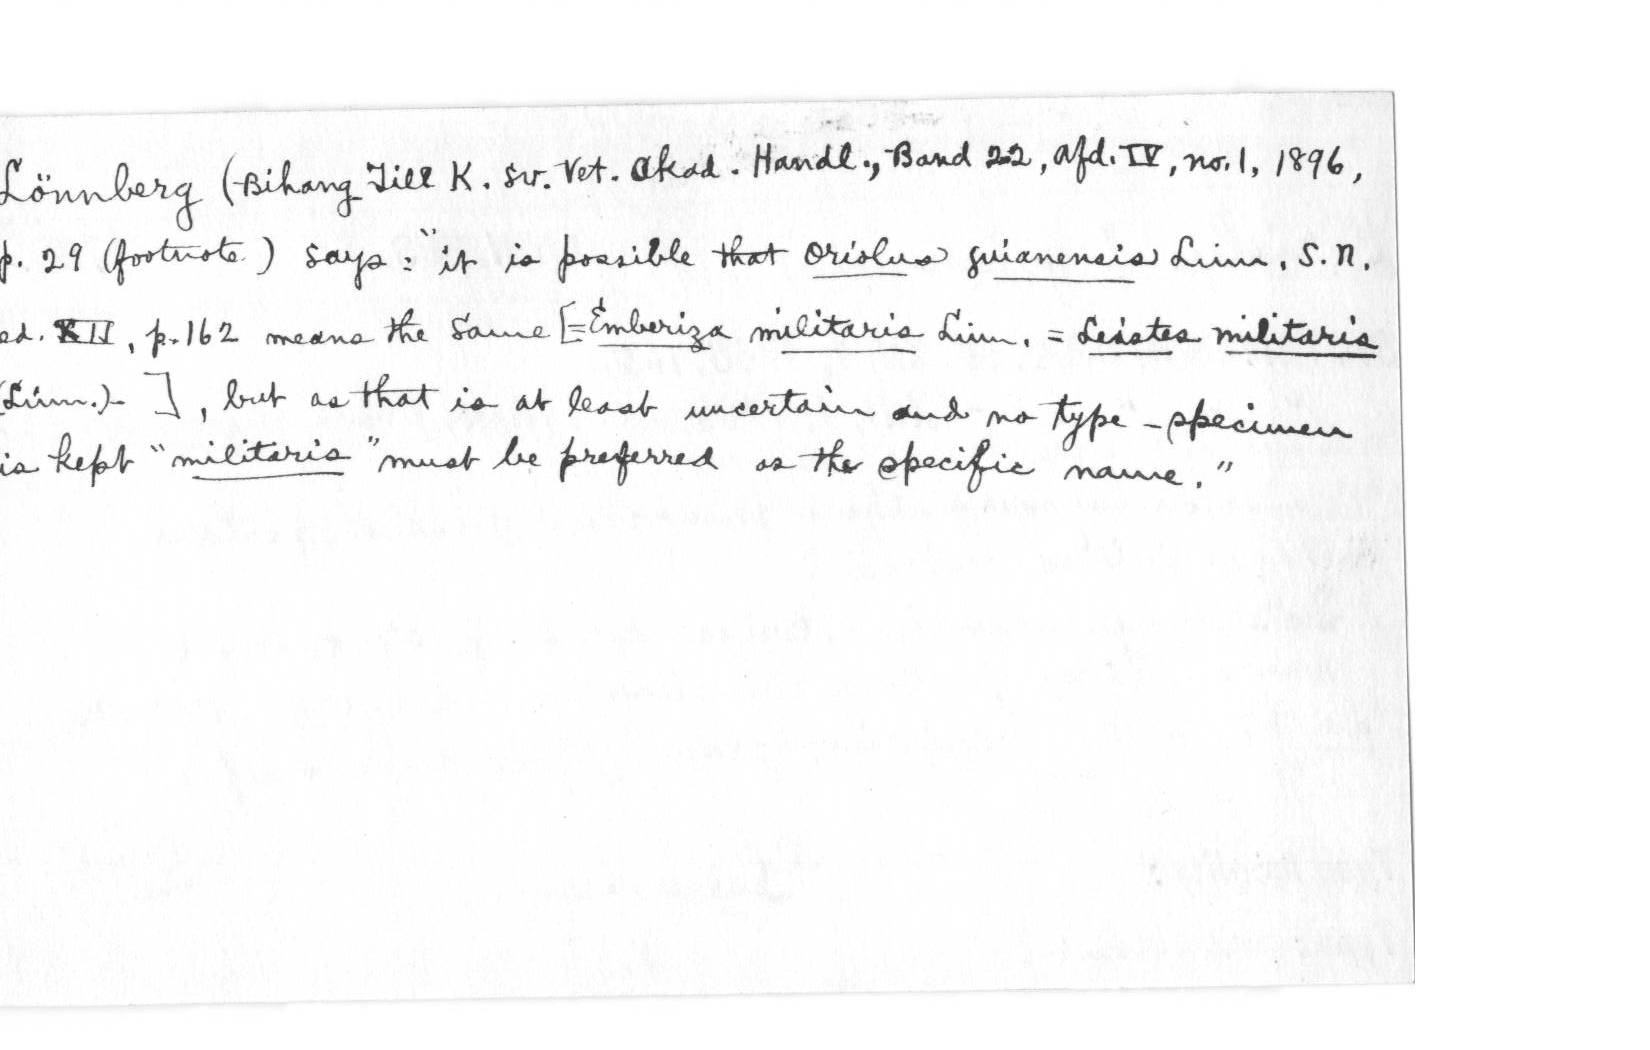 Lönnberg (Bihang Till K. Sv. Vet. Akad. Handl., Band 22, Afd. IV, no. 1, 1896,
p. 29 (footnote) says: "it is possible that Oriolus guianensis Linn. S. N.
ed. XII, p. 162 means the same [= Emberiza militaris Linn. = Leistes militaris
(Linn.)- ], but as that is at least uncertain and no type-specimen
is kept "militaris" must be preferred as the specific name."